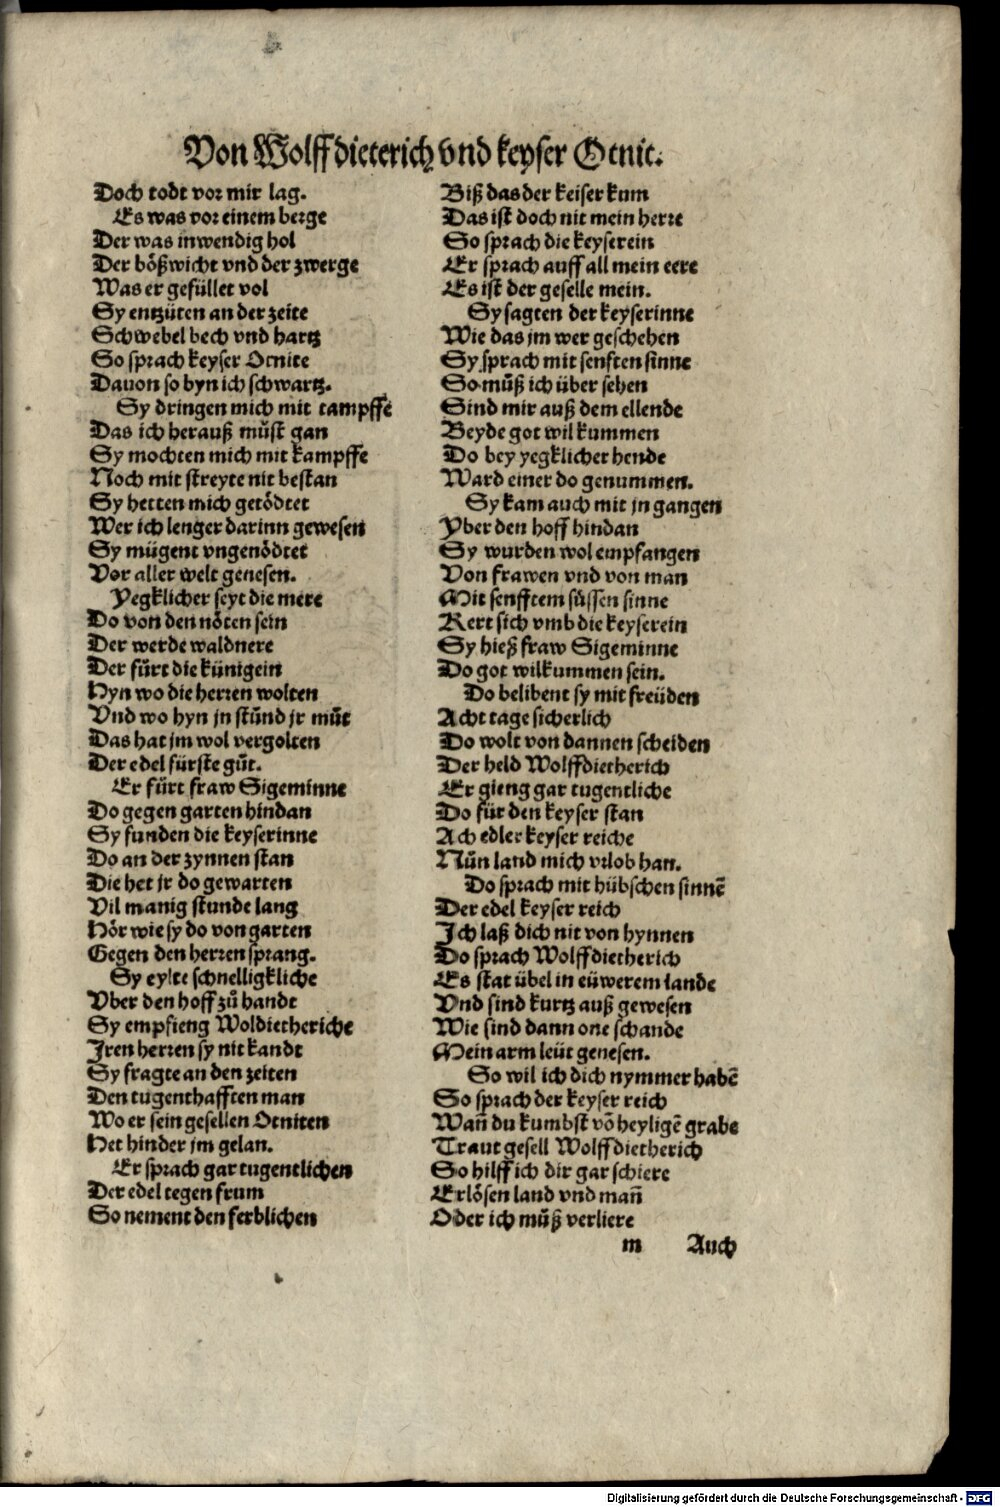 Von Wolffdieterich vnd keyser Otnit.
Doch todt vor mir lag.
Es was vor einem berge
Der was inwendig hol
Der bößwicht vnd der zwerge
Was er gefüllet vol
Sy entzüten an der zeite
Schwebel bech vnd hartz
So sprach keyser Otnite
Dauon so byn ich schwartz.
Sy dringen mich mit tampffe
Das ich herauß můst gan
Sy mochten mich mit kampffe
Noch mit streyte nit bestan
Sy hetten mich getödtet
Wer ich lenger darinn gewesen
Sy mügent vngenödtet
Vor aller welt genesen.
Yegklicher seyt die mere
Do von den nöten sein
Der werde waldnere
Der fůrt die künigein
Hyn wo die herren wolten
Vnd wo hyn jn stůnd jr můt
Das hat jm wol vergolten
Der edel fürste gůt.
Er fůrt fraw Sigeminne
Do gegen garten hindan
Sy funden die keyserinne
Do an der zynnen stan
Die het jr do gewarten
Vil manig stunde lang
Hör wie sy do von garten
Gegen den herren sprang.
Sy eylte schnelligkliche
Vber den hoff zů handt
Sy empfieng Woldietheriche
Jren herren sy nit kandt
Sy fragte an den zeiten
Den tugenthafften man
Wo er sein gesellen Otniten
Het hinder jm gelan.
Er sprach gar tugentlichen
Der edel tegen frum
So nement den ferblichen
Biß das der keiser kum
Das ist doch nit mein herre
So sprach die keyserein
Er sprach auff all mein eere
Es ist der geselle mein.
Sy sagten der keyserinne
Wie das jm wer geschehen
Sy sprach mit senften sinne
So můß ich über sehen
Sind mir auß dem ellende
Beyde got wil kummen
Do bey yegklicher hende
Ward einer do genummen.
Sy kam auch mit jn gangen
Yber den hoff hindan
Sy wurden wol empfangen
Von frawen vnd von man
Mit senfftem süssen sinne
Kert sich vmb die keyserein
Sy hieß fraw Sigeminne
Do got wilkummen sein.
Do belibent sy mit freüden
Acht tage sicherlich
Do wolt von dannen scheiden
Der held Wolffdietherich
Er gieng gar tugentliche
Do für den keyser stan
Ach edler keyser reiche
Nůn land mich vrlob han.
Do sprach mit hübschen sinnē
Der edel keyser reich
Jch laß dich nit von hynnen
Do sprach Wolffdietherich
Es stat übel in eüwerem lande
Vnd sind kurtz auß gewesen
Wie sind dann one schande
Mein arm leüt genesen.
So wil ich dich nymmer habē
So sprach der keyser reich
Wañ du kumbst vō heyligē grabe
Traut gesell Wolffdietherich
So hilff ich dir gar schiere
Erlösen land vnd mañ
Oder ich můß verliere
m Auch
Digitalisierung gefördert durch die Deutsche Forschungsgemeinschaft - DFG